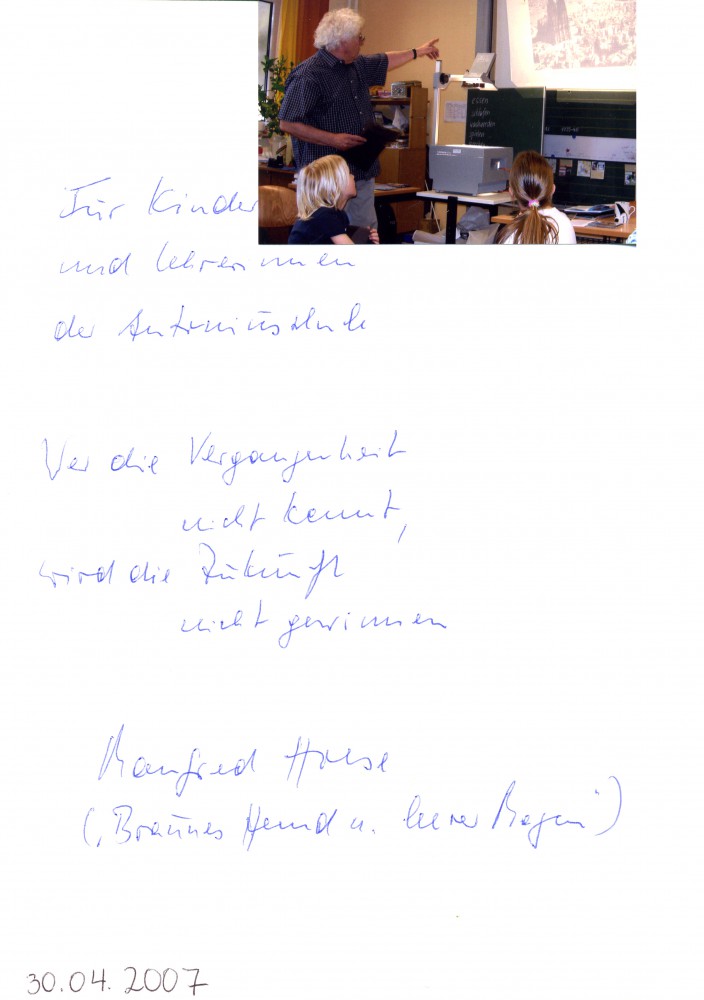 Für Kinder
und Lehrerinnen
der Antoniusschule
Wer die Vergangenheit
nicht kennt,
wird die Zukunft
nicht gewinnen
Manfred
("Braunes Hemd u. leerer Magen")
30.04.2007